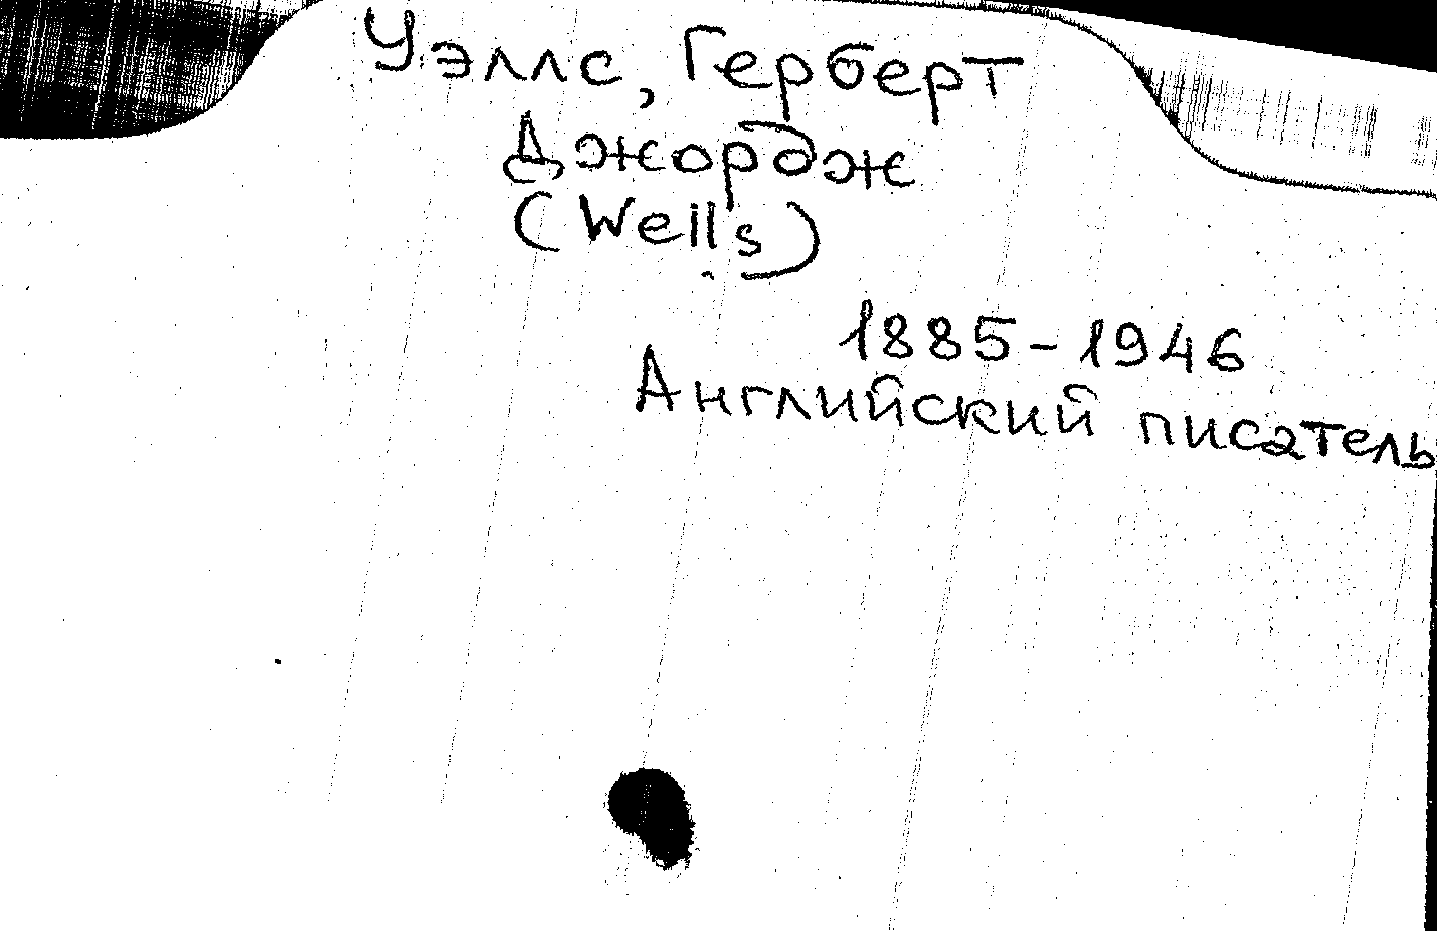 Уэллс, Герберт
Джордж
(Wells)
1885-1946
Английский писатель